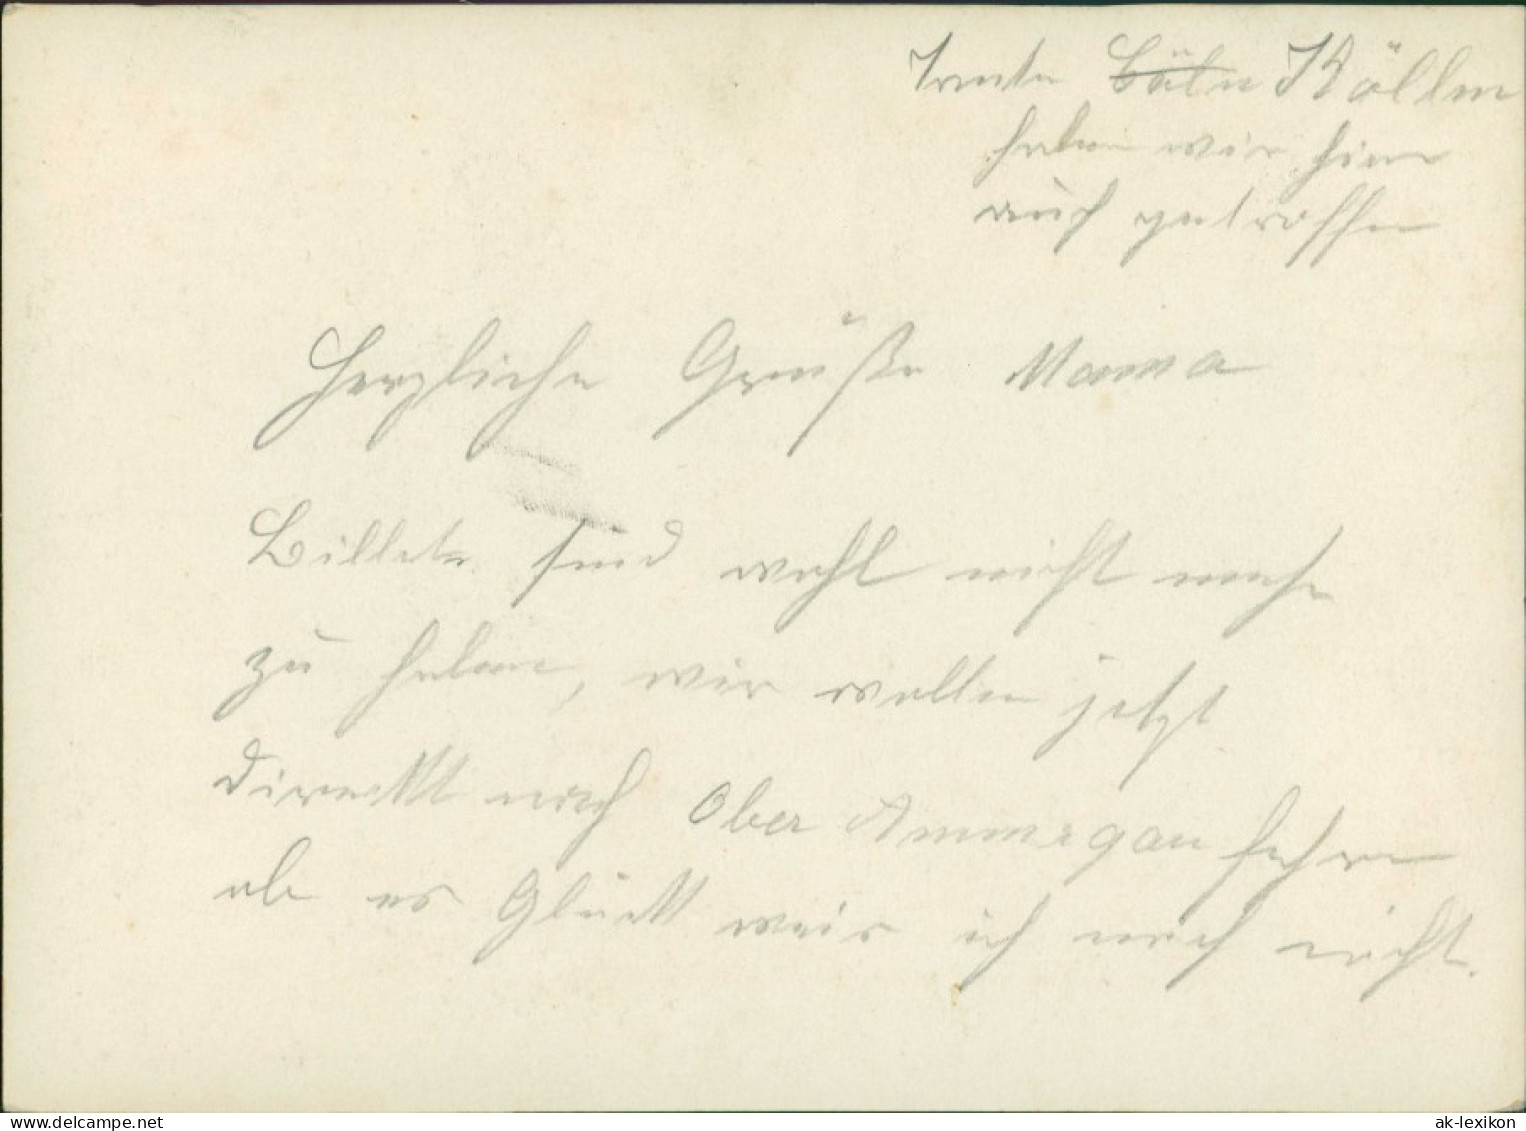 Tante Köllen
haben wir hier
auch getroffen
Herzliche Grüße Mama
Billete sind wohl nicht mehr
zu haben, wir wollen jetzt
direckt nach Ober Ammergau fahren
ob es Glückt weis ich noch nicht.
www.delcampe.net
ak-lexikon